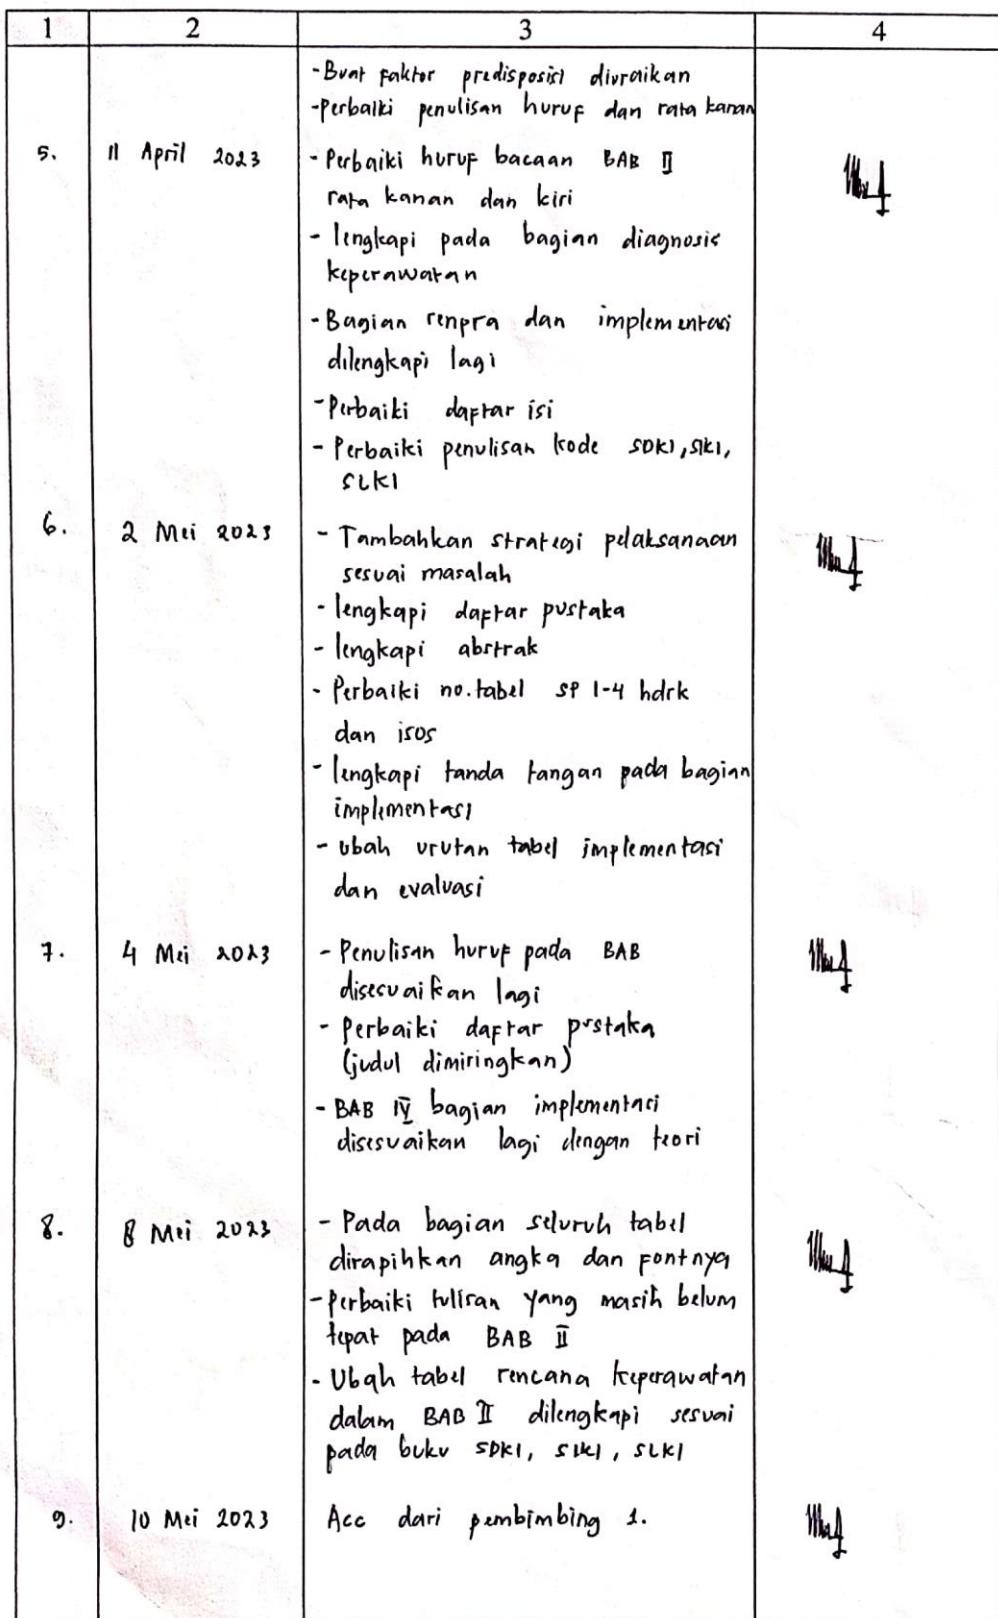 1 2 3 4
-Buat faktor predisposisi diuraikan
-perbaiki penulisan huruf dan rata kanan
5. 11 April 2023 - Perbaiki huruf bacaan BAB II
rata kanan dan kiri
- lengkapi pada bagian diagnosis
keperawatan
- Bagian renpra dan implementasi
dilengkapi lagi
- Perbaiki daftar isi
- Perbaiki penulisan kode SDKI, SIKI,
SLKI
6. 2 Mei 2023 - Tambahkan strategi pelaksanaan
sesuai masalah
- lengkapi daftar pustaka
- lengkapi abstrak
- Perbaiki no.tabel SP 1-4 hdrk
dan isos
- lengkapi tanda tangan pada bagian
implementasi
- ubah urutan tabel implementasi
dan evaluasi
7. 4 Mei 2023 - Penulisan huruf pada BAB
disesuaikan lagi
- Perbaiki daftar pustaka
(judul dimiringkan)
- BAB IV bagian implementasi
disesuaikan lagi dengan teori
8. 8 Mei 2023 - Pada bagian seluruh tabel
dirapihkan angka dan fontnya
- Perbaiki tulisan yang masih belum
tepat pada BAB II
- Ubah tabel rencana keperawatan
dalam BAB II dilengkapi sesuai
pada buku SDKI, SIKI, SLKI
9. 10 Mei 2023 Acc dari pembimbing 1.